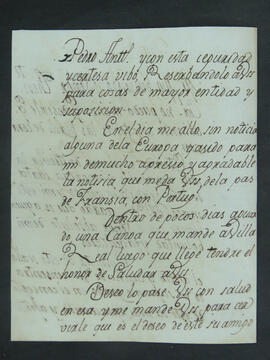 Pedro Antt.º y con esta ceguridad
y certesa vibo, Reserbandolo a VS
para cosas de mayor entidad y
supocicion.
En el dia me allo, sin noticia
alguna de la Europa y a sido para
mi de mucho apresio y agradable
la notisia que me da VS, de la pas
de Fransia, con Portug.
Dentro de pocos dias aguar
do una Canoa que mande a Villa
Real luego que llege tendre el
honor de Saludar a VS
Deseo lo pase VS con salud
en esa y me mande VS, para cer
virle que es el deseo de este su amigo